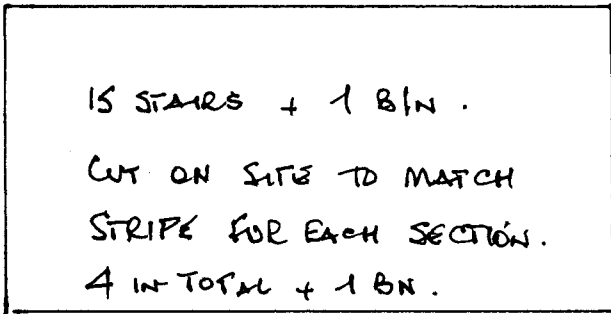 15 STAIRS + 1 BIN.
CUT ON SITE TO MATCH
STRIPE FOR EACH SECTION.
4 IN TOTAL + 1 BN.